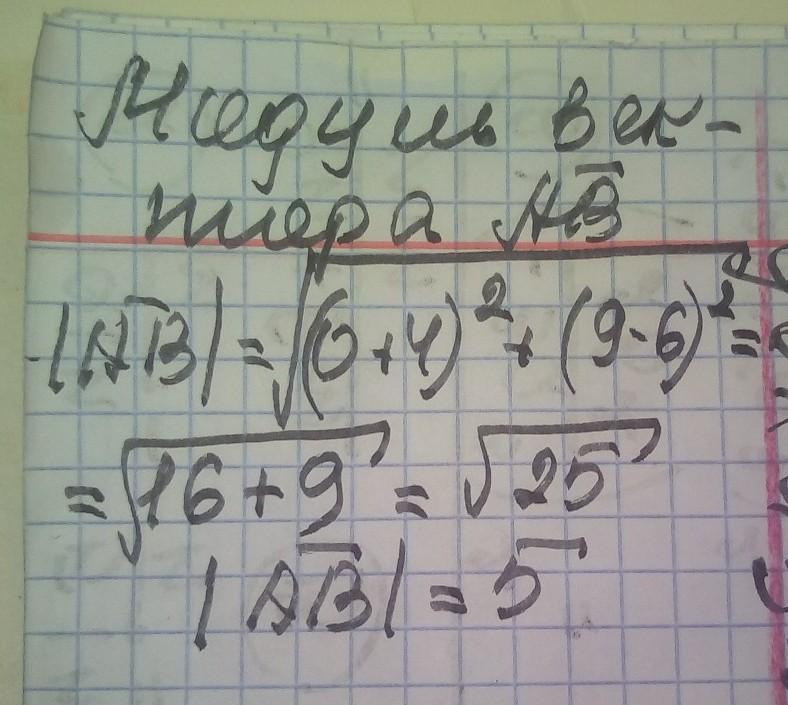 Модуль век-
тора AB̅
|AB̅| = √(0+4)² + (9-6)² =
= √16+9 = √25
|AB̅| = 5